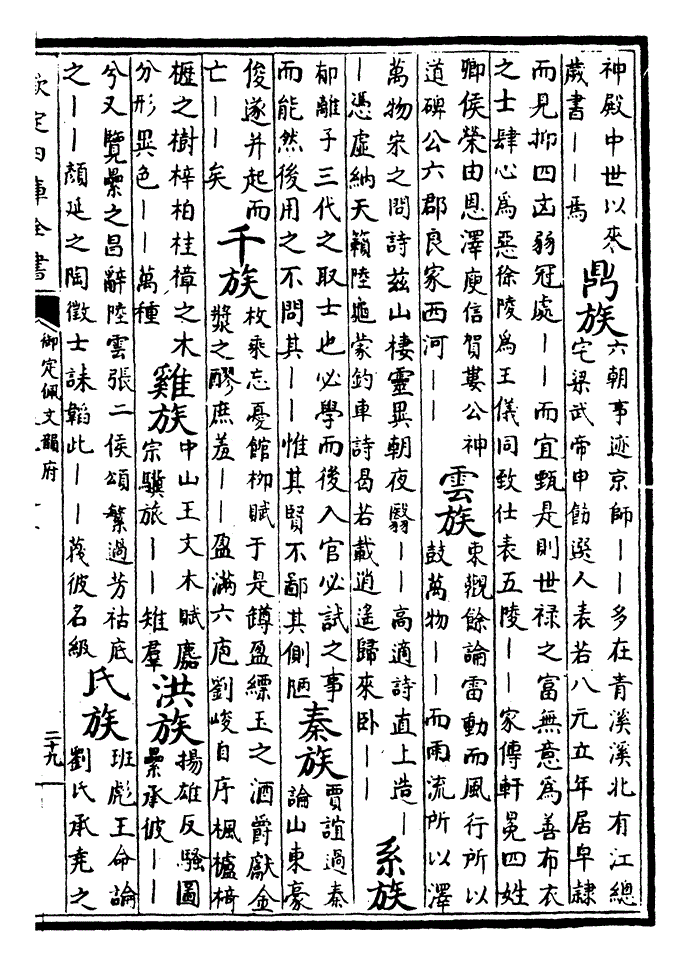 神殿中世以來
歲書｜｜焉
鼎族
六朝事迹京師｜｜多在青溪溪北有江總
宅梁武帝申飭選人表若八元立年居皁隸
而見抑四凶弱冠處｜｜而宜甄是則世祿之富無意為善布衣
之士肆心為惡徐陵為王儀同致仕表五陵｜｜家傳軒冕四姓
卿侯榮由恩澤庾信賀婁公神
道碑公六郡良家西河｜｜
雲族
東觀餘論雷動而風行所以
鼓萬物｜｜而雨流所以澤
萬物宋之問詩茲山棲靈異朝夜翳｜｜高適詩直上造｜
｜憑虛納天籟陸龜蒙釣車詩曷若載逍遙歸來臥｜｜
系族
郁離子三代之取士也必學而後入官必試之事
而能然後用之不問其｜｜惟其賢不鄙其側陋
秦族
賈誼過秦
論山東豪
俊遂并起而
亡｜｜矣
千族
枚乘忘憂館栁賦于是罇盈縹玉之酒爵獻金
漿之醪庶羞｜｜盈滿六庖劉峻自序楓櫨椅
櫪之樹梓柏桂樟之木
分形異色｜｜萬種
雞族
中山王文木賦麚
宗驥旅｜｜雉羣
洪族
揚雄反騷圖
纍承彼｜｜
兮又覽纍之昌辭陸雲張二侯頌繁過芳祜底
之｜｜顏延之陶徵士誄韜此｜｜蔑彼名級
氏族
班彪王命論
劉氏承堯之
欽定四庫全書
御定佩文韻府
二十九